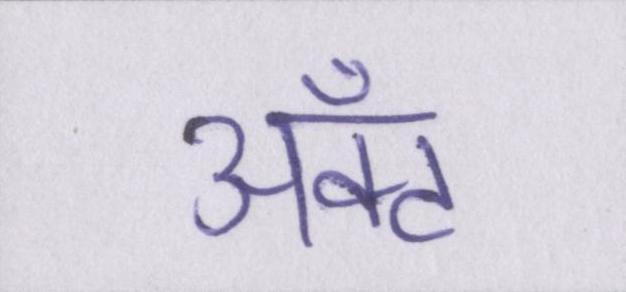 अँक्ट